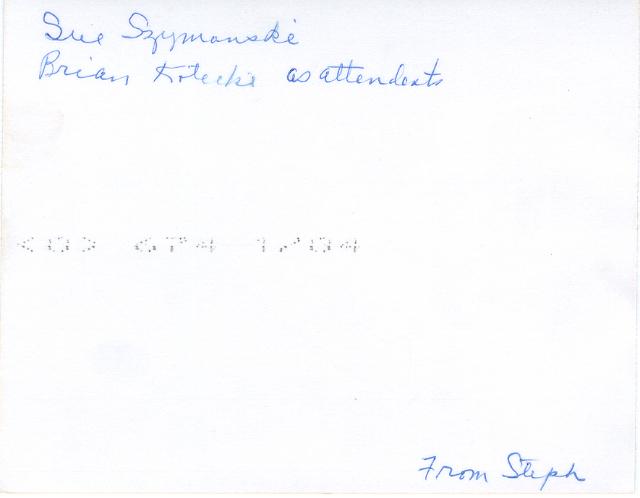 Sue Szymanski
Brian Kotecki as attendents
<0> 674 1/04
From Steph